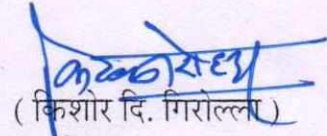 ( किशोर दि. गिरोल्ला )